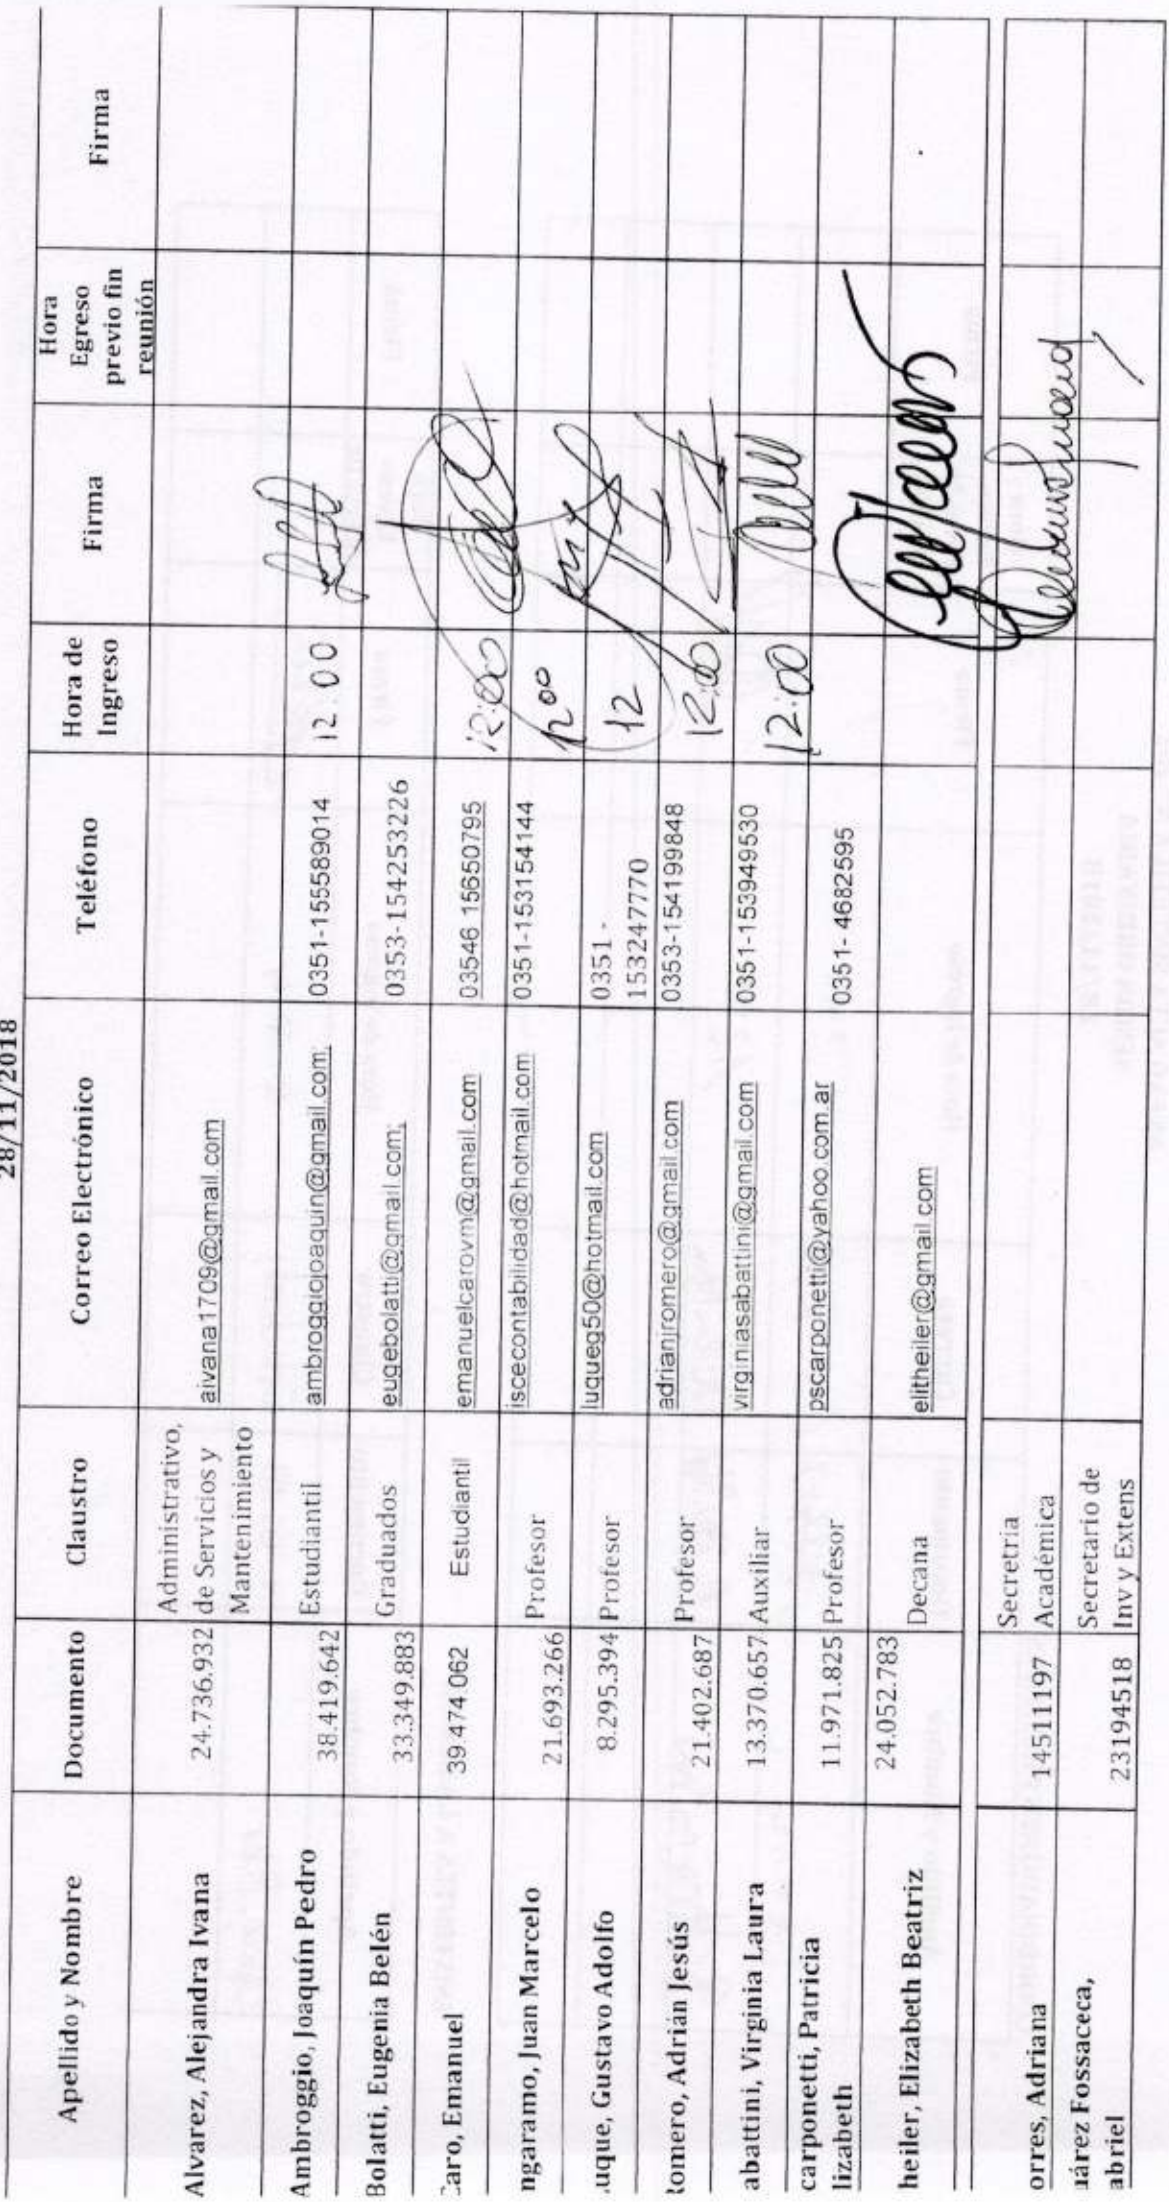 28/11/2018
Apellido y Nombre Documento Claustro Correo Electrónico Teléfono Hora de Ingreso Firma Hora Egreso previo fin reunión Firma
Alvarez, Alejandra Ivana 24.736.932 Administrativo, de Servicios y Mantenimiento aivana1709@gmail.com
Ambroggio, Joaquín Pedro 38.419.642 Estudiantil ambroggiojoaquin@gmail.com; 0351-155589014 12:00
Bolatti, Eugenia Belén 33.349.883 Graduados eugebolatti@gmail.com; 0353-154253226
Caro, Emanuel 39.474.062 Estudiantil emanuelcarovm@gmail.com 03546 15650795 12:00
ngaramo, Juan Marcelo 21.693.266 Profesor iscecontabilidad@hotmail.com 0351-153154144 12 00
uque, Gustavo Adolfo 8.295.394 Profesor luqueg50@hotmail.com 0351 - 153247770 12
Romero, Adrián Jesús 21.402.687 Profesor adrianjromero@gmail.com 0353-154199848 12:00
abattini, Virginia Laura 13.370.657 Auxiliar virginiasabattini@gmail.com 0351-153949530 12:00
carponetti, Patricia lizabeth 11.971.825 Profesor pscarponetti@yahoo.com.ar 0351- 4682595
heiler, Elizabeth Beatriz 24.052.783 Decana elitheiler@gmail.com
orres, Adriana 14511197 Secretria Académica
uárez Fossaceca, abriel 23194518 Secretario de Inv y Extens